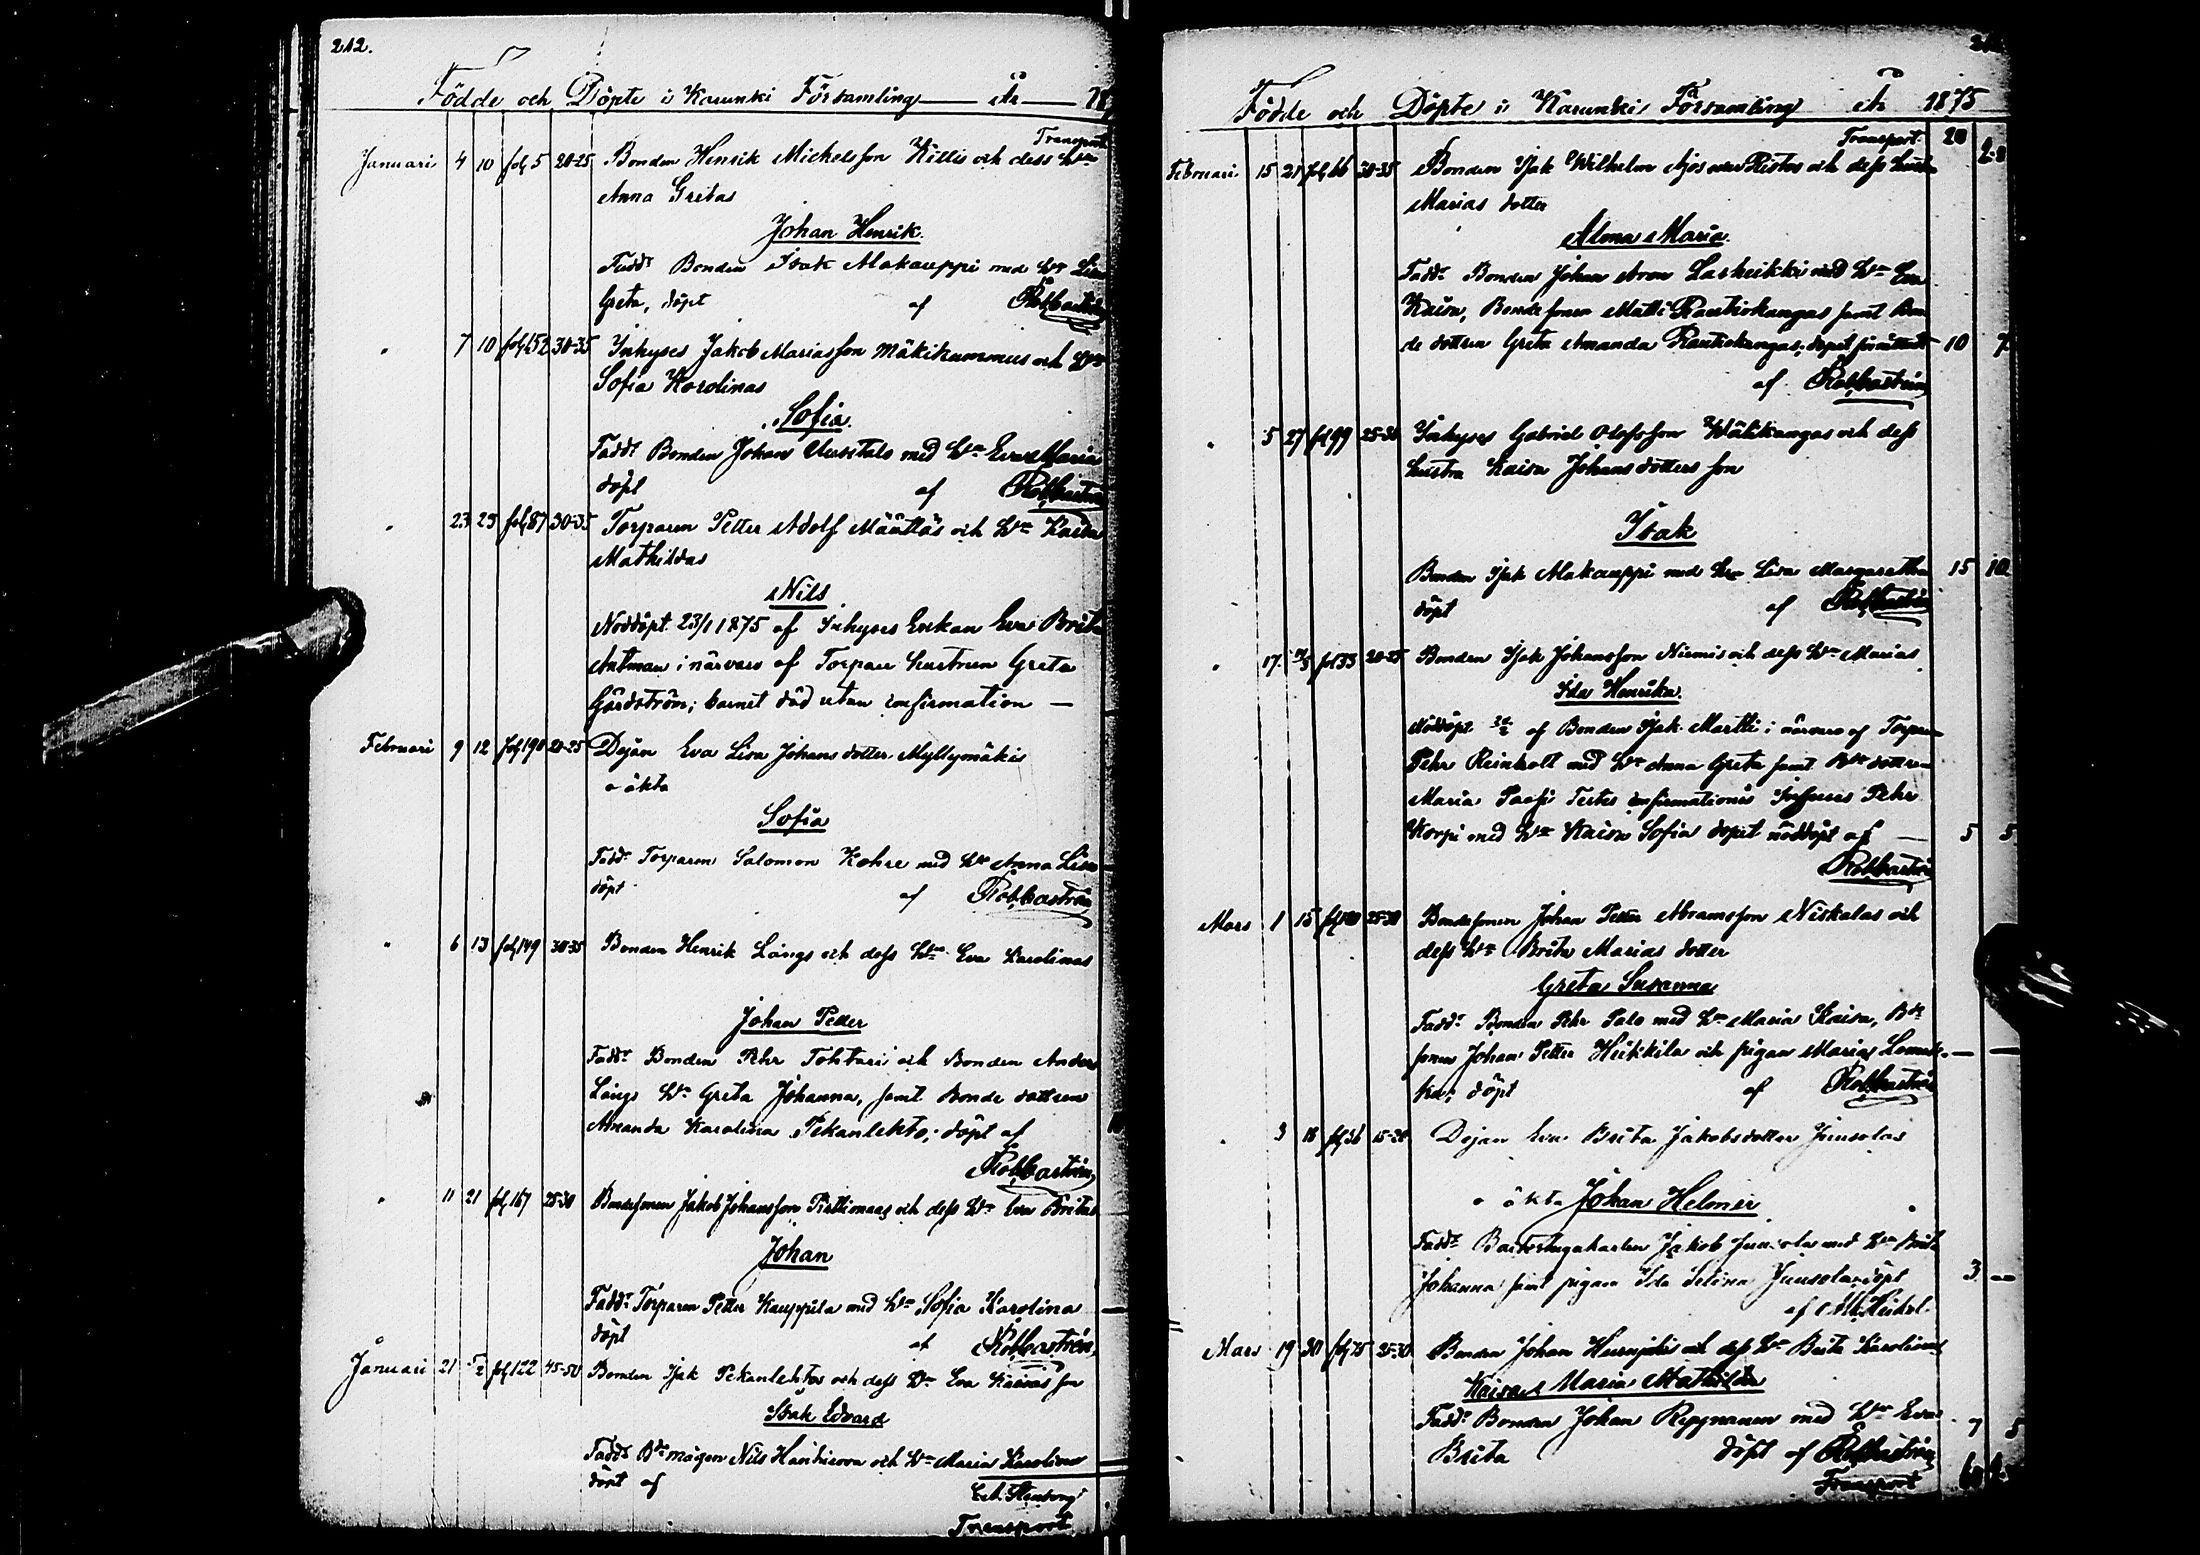 212.
Födde och Döpte i Karunki Församling År 18
Transport
Januari 4 10 fol 5 20-25 Bonden Henrik Michelsson Killis och dess Hu
Anna Gretas
Johan Henrik.
Fadd: Bonden Isak Alakauppi med Hu Lisa
Greta, döpt af Rob Castrén
" 7 10 fol 152 30-35 Inhyses Jakob Mariasson Mäkikummus och Hu
Sofia Karolinas
Sofia.
Fadd: Bonden Johan med Hu Eva Maria
döpt af Rob Castrén
" 23 25 fol 87 30-35 Torparen Petter Adolf Määttäs och Hu Kaisa
Mathildas
Nils
Nöddöpt 23/1 1875 af Inhyses Enkan Eva Brita
Antman i närvaro af Torpare hustrun Greta
Gärdström; barnet död utan confirmation —
Februari 9 12 fol 190 20-25 Dejan Eva Lisa Johans dotter Myllymäkis
oäkta
Sofia
Fadd: Torparen Salomon Kohre med Hu Anna Lisa
döpt af Rob Castrén
" 6 13 fol 149 30-35 Bonden Henrik Längs och dess Hu Eva Karolinas
Johan Petter
Fadd: Bonden Pehr Tohtari och Bonden Anders
Längs Hu Greta Johanna, samt Bonde dottren
Amanda Karolina Pekanlehto, döpt af
Rob Castrén
" 11 21 fol 167 25-30 Bondesonen Jakob Johansson och dess Hu Eva Britas
Johan
Fadd: Torparen Petter Kauppila med Hu Sofia Karolina
döpt af Rob Castrén
Januari 21 fol 122 45-50 Bonden Isak Pekanlehtos och dess Hu Eva Kaisas son
Isak Edvard
Fadd: Bde mågen Nils och Hu Maria Karolina
döpt af
Transport
Födde och Döpte i Karunki Församling År 1875
Transport 20
Februari 15 21 fol 66 30-35 Bonden Isak Wilhelm Ristos och dess hustru
Marias dotter
Alma Maria.
Fadd: Bonden Johan Aron Laskeikki med Hu Eva
Kaisa, Bondesonen Matti Rautiokangas samt Bon
de dottren Greta Amanda Rautiokangas, döpt 10 7
af Rob Castrén
" 5 27 fol 99 25-30 Inhyses Gabriel Olofsson Wälikangas och dess
hustru Kaisa Johansdotters son
Isak
Bonden Isak Alakauppi med Hu Lisa Margaretha 15 10
döpt af Rob Castrén
" 17 fol 33 20-25 Bonden Isak Johansson Niemis och dess Hu Marias
Ida Henrika.
Nöddöpt af Bonden Isak Martti i närvaro af Torparen
Pehr Reinholt med Hu Anna Greta samt Bde dottren
Maria Testes confirmationis Inhyses Pehr
Korpi med Hu Kaisa Sofia döpt nöddöpt af — 5 5
Rob Castrén
Mars 1 15 25-30 Bondesonen Johan Petter Abramsson Niskalas och
dess Hu Brita Marias dotter
Greta Susanna
Fadd: Bonden Pehr Palo med Hu Maria Kaisa, Bde
sonen Johan Petter Heikkila och pigan Maria — —
döpt af Rob Castrén
" 3 18 fol 36 15-20 Dejan Eva Brita Jakobsdotter Juusolas
oäkta Johan Helmer
Fadd: Backstugakarlen Jakob Juusola med Hu Brita
Johanna samt pigan Ida Selina Juusola döpt 3 —
af
Mars 19 30 fol 75 25-30 Bonden Johan och dess Hu Brita Karolinas
Kaisa Maria Mathilda
Fadd: Bonden Johan Reppnanen med Hu Eva 7 5
Brita döpt af Rob Castrén
Transport